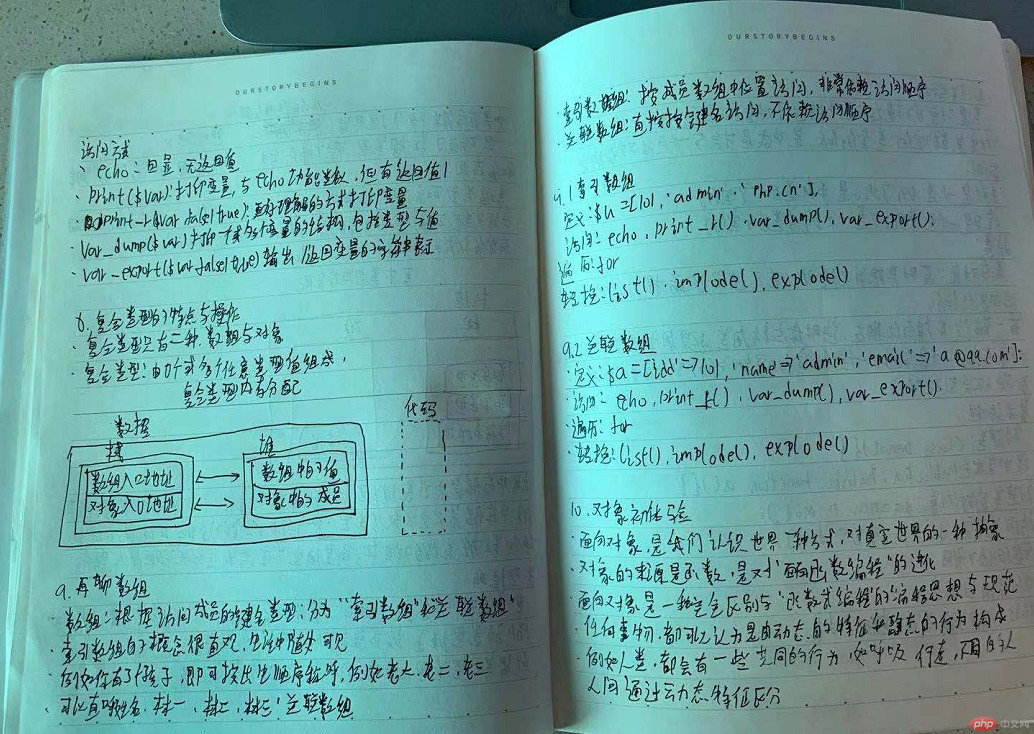 OURSTORYBEGINS
访问方式
· echo: 回显,无返回值
· print($var): 打印变量,与echo功能类似,但有返回值1
· print_r($var,false|true): 更好理解的方式打印变量
· var_dump($var) 打印一个或多个变量的结构,包括类型与值
· var_export($var,false|true) 输出/返回变量的字符串表示
8. 复合类型的特点与操作
· 复合类型只有二种,数组与对象
· 复合类型: 由0个或多个任意类型值组成,
复合类型内存分配
代码
数据
栈
堆
数组入口地址
数组中的值
对象入口地址
对象中的成员
9. 再聊数组
· 数组: 根据访问成员的键名类型,分为"索引数组"和"关联数组"
· 索引数组的概念很直观,生活中随处可见
· 例如你有3个孩子,即可按出生顺序称呼,例如老大、老二、老三
· 可以直呼姓名,林一、林二、林三,关联数组
OURSTORYBEGINS
· 索引数组: 按成员数组中位置访问,非常依赖访问顺序
· 关联数组: 直接按键名访问,不依赖访问顺序
9.1 索引数组
定义: $u = [101, 'admin', 'php.cn'],
访问: echo, print_r(), var_dump(), var_export().
遍历: for
转换: list(), implode(), explode()
9.2 关联数组
· 定义: $a = ['id'=>101, 'name=>'admin', 'email'=>'a@qq.com'];
· 访问: echo, print_r(), var_dump(), var_export().
· 遍历: for
· 转换: list(), implode(), explode()
10. 对象初体验
· 面向对象,是我们认识世界一种方式,对真实世界的一种抽象
· 对象的来源是函数,是对"面向函数编程"的进化
· 面向对象是一种完全区别与"函数式编程"的编程思想与规范
· 任何事物,都可以认为是由动态的特征和静态的行为构成
· 例如人类,都会有一些共同的行为,如呼吸 行走,不同的人
人间通过动态特征区分
php 中文网